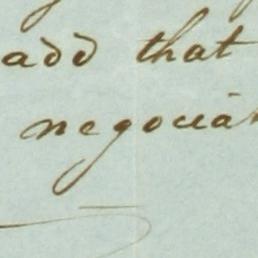 add that
negociat